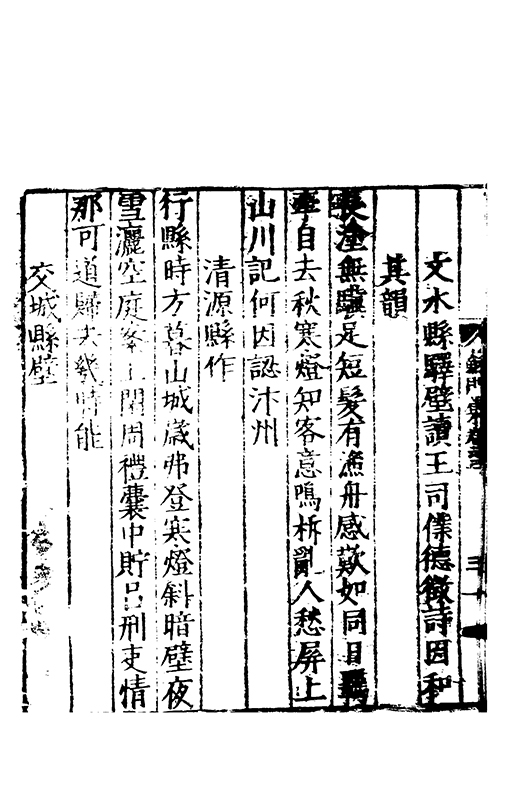 文水縣驛壁讀王司僕德徵詩因和
其韻
長塗無驥足短髮有漁舟感歎如同目
牽自去秋寒燈知客意鳴柝亂人愁屏上
山川記何因認沐州
清源縣作
行縣時方暮山城歲弗登寒燈斜暗壁夜
雪灑空庭案上閒周禮囊中貯呂刑吏情
那可道歸夫幾時能
交城縣壁